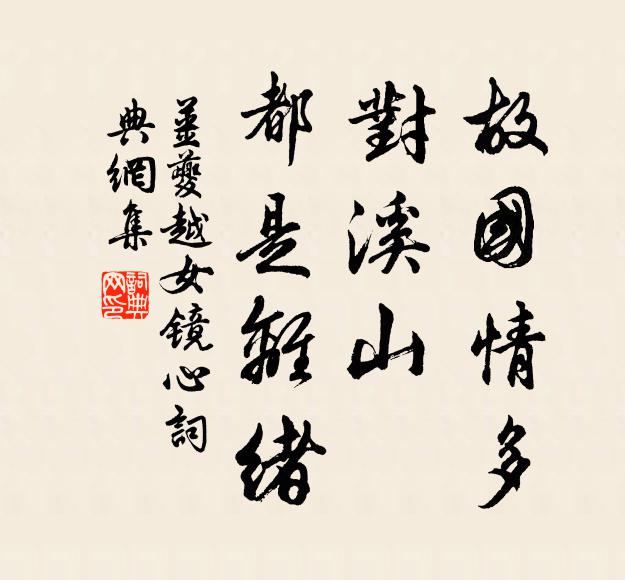 故國情多
對溪山
都是離緒
姜夔越女鏡心詞
典網集
詞典網印